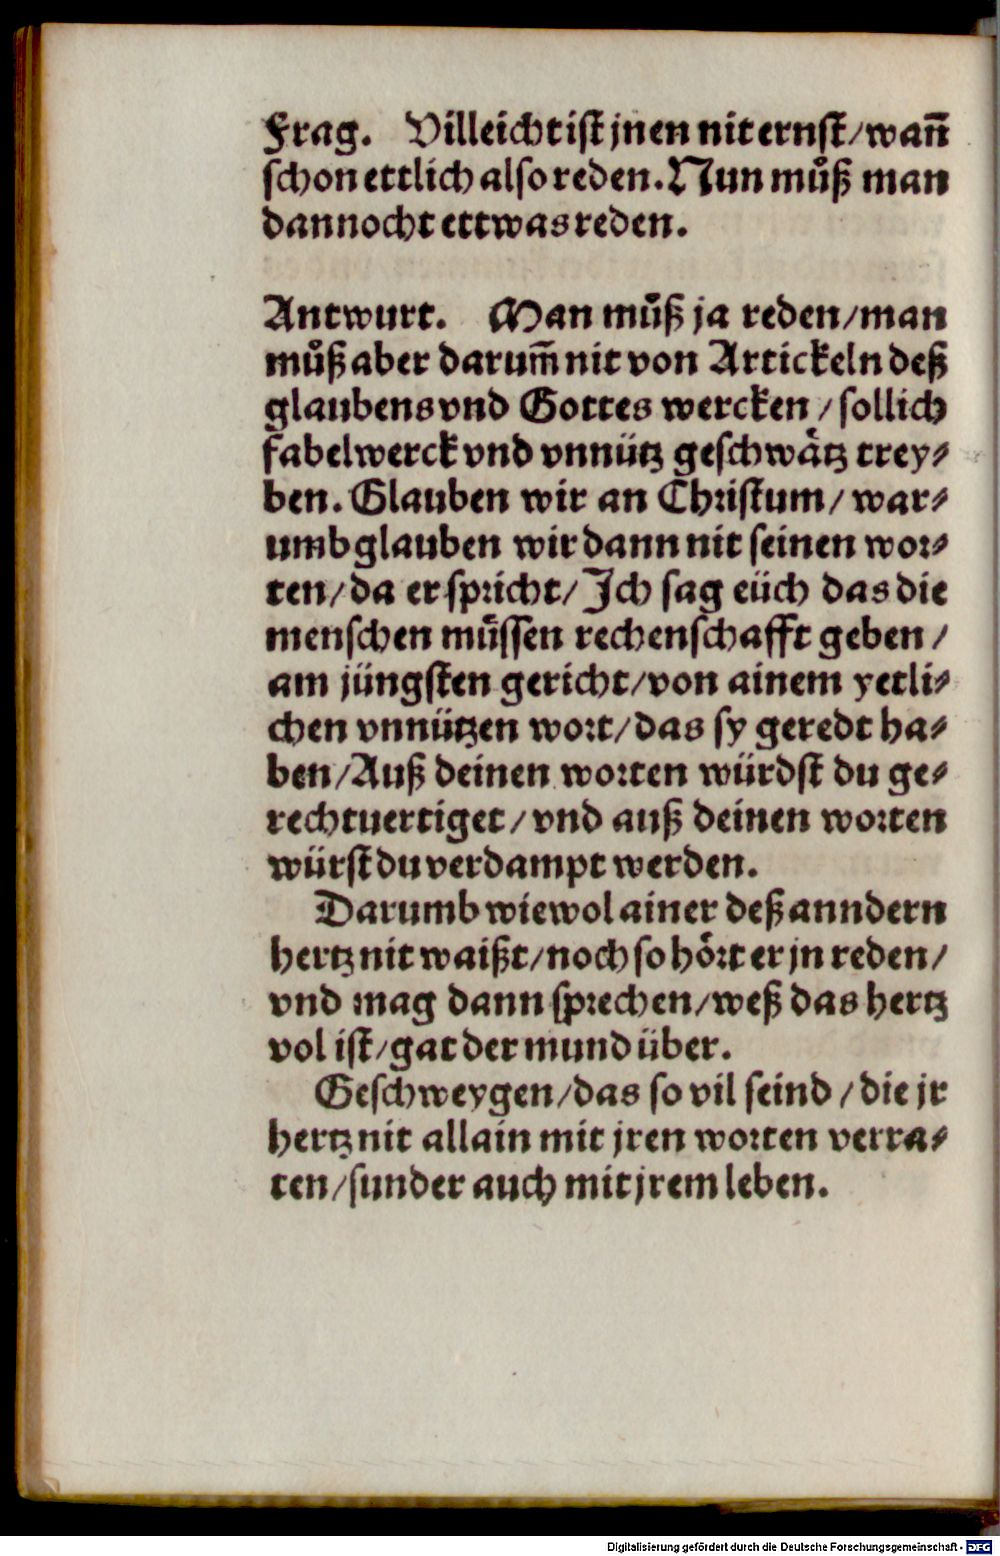 Frag. Villeicht ist jnen nit ernst/wañ
schon ettlich also reden. Nun můß man
dannocht ettwas reden.
Antwurt. Man můß ja reden/man
můß aber darum̃ nit von Artickeln deß
glaubens vnd Gottes wercken/sollich
fabelwerck vnd vnnütz geschwaͤtz trey⸗
ben. Glauben wir an Christum/war⸗
umb glauben wir dann nit seinen wor⸗
ten/da er spricht/Ich sag eüch das die
menschen muͤssen rechenschafft geben/
am jüngsten gericht/von ainem yetli⸗
chen vnnützen wort/das sy geredt ha⸗
ben/Auß deinen worten würdst du ge⸗
rechtuertiget/vnd auß deinen worten
würst du verdampt werden.
Darumb wiewol ainer deß anndern
hertz nit waißt/noch so hoͤrt er jn reden/
vnd mag dann sprechen/weß das hertz
vol ist/gat der mund über.
Geschweygen/das so vil seind/die jr
hertz nit allain mit jren worten verra⸗
ten/sunder auch mit jrem leben.
Digitalisierung gefördert durch die Deutsche Forschungsgemeinschaft - DFG